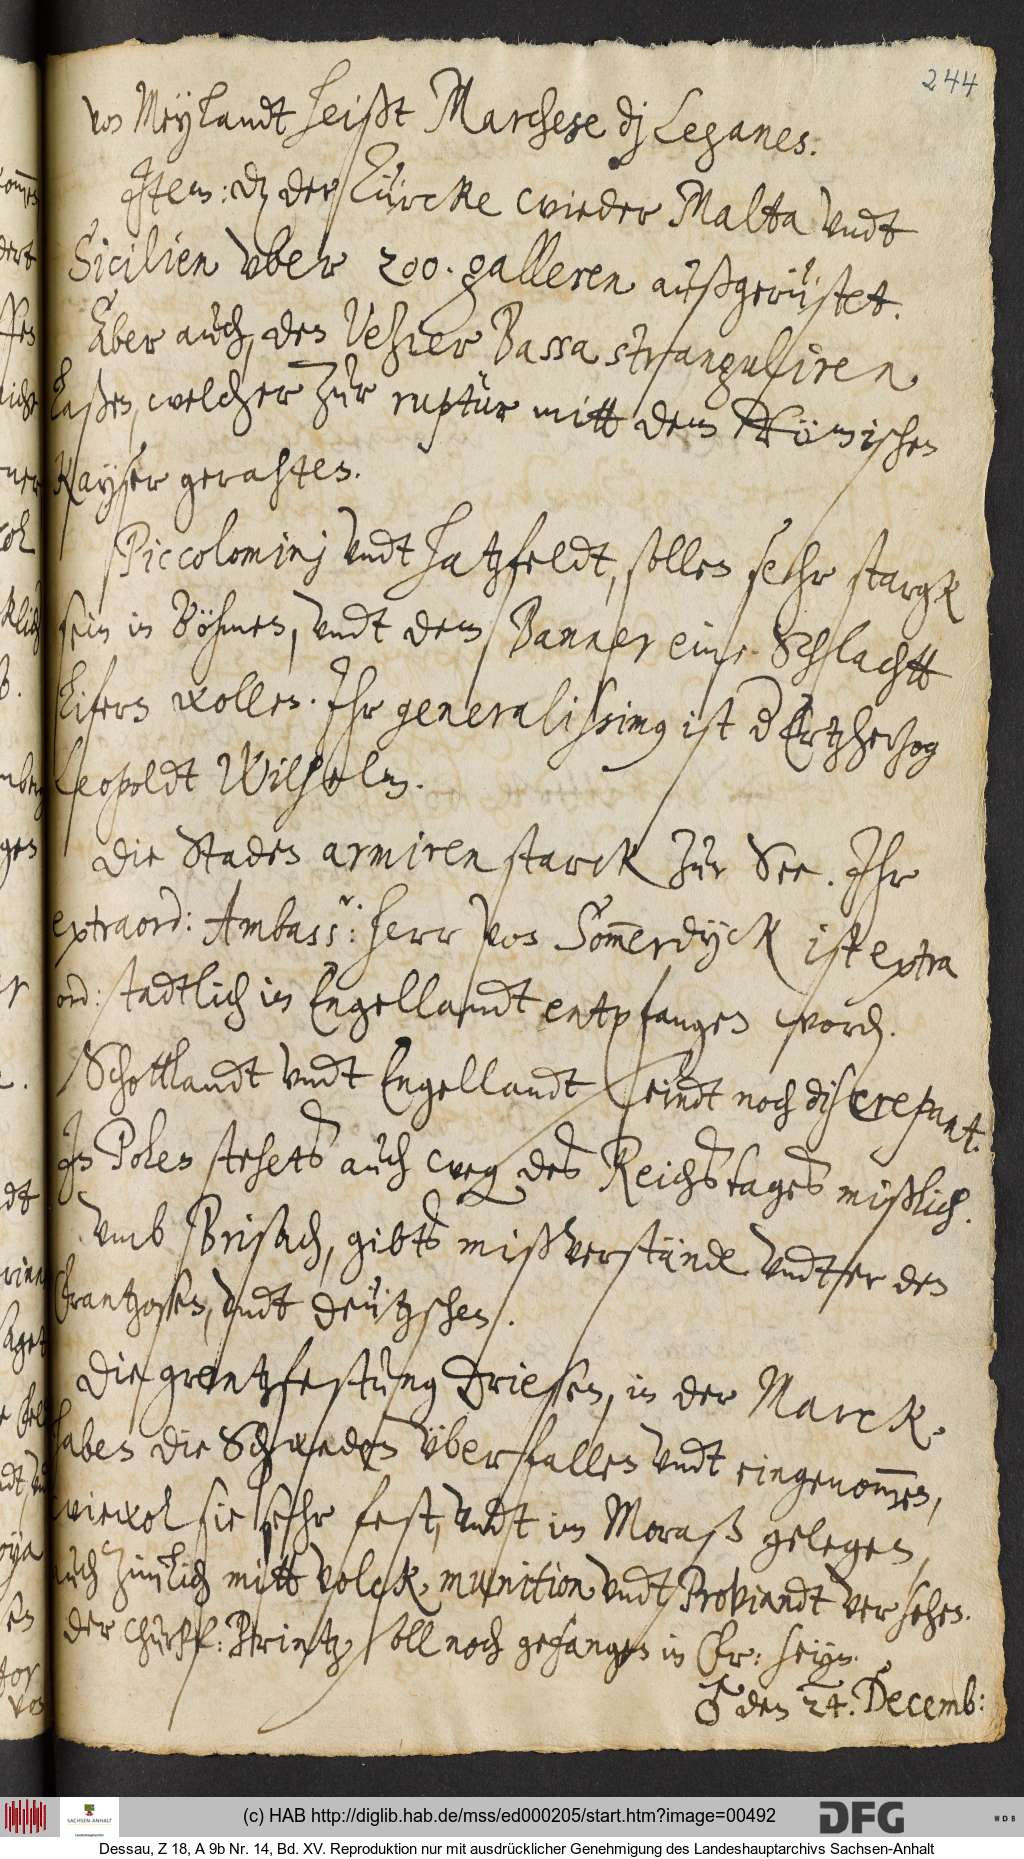 244
von Meylandt heißt Marchese dj Leganes.
Item: dz der Türcke wieder Malta vndt
Sicilien vber 200. galleren außgerüstet.
Aber auch, den Vehsier Bassa stranguliren
laßen, welcher zur ruptur mitt dem Römischen
Kayser gerahten.
Piccolominj vndt Hatzfeldt, sollen sehr stargk
sein in Böhmen, vndt dem Banner eine Schlachtt
lifern wollen. Ihr generalissimus ist d Ertzhertzog
Leopoldt Wilhelm.
Die Staden armiren starck zur See. Ihr
extraord: Ambassr: herr von Sommerdyck ist extra
ord: stadtlich in Engellandt entpfangen word.
Schottlandt vndt Engellandt seindt noch discrepant.
In Polen stehets auch weg des Reichstages mißlich.
Vmb Brisach, gibts mißverstände vndter den
Frantzosen, vndt deützschen.
Die grentzfestung Driesen, in der Marck,
haben die Schweden überfallen vndt eingenommen,
wiewol sie sehr fest, vndt im Moraß gelegen,
auch zimlich mitt volck, munition vndt Proviandt versehen.
der Churpf: Printz soll noch gefangen in Fr: seyn.
♂ den 24. Decemb:
(c) HAB http://diglib.hab.de/mss/ed000205/start.htm?image=00492
SACHSEN-ANHALT
DFG
WDB
Dessau, Z 18, A 9b Nr. 14, Bd. XV. Reproduktion nur mit ausdrücklicher Genehmigung des Landeshauptarchivs Sachsen-Anhalt